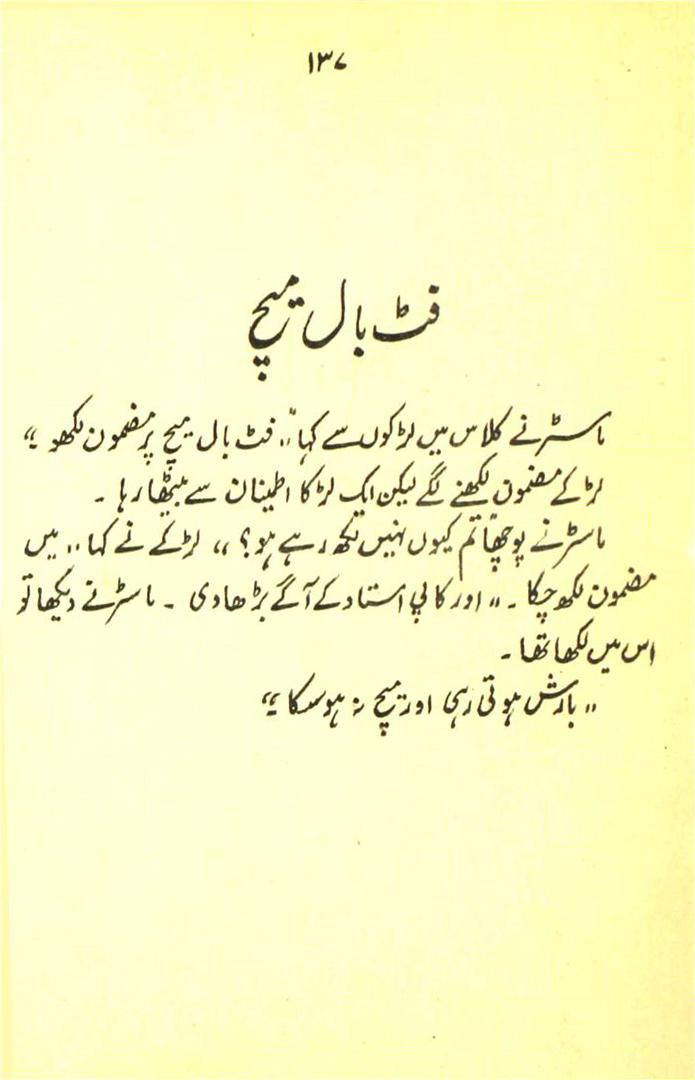 ۱۳۷
فٹ بال میچ
ماسٹر نے کلاس میں لڑکوں سے کہا ”فٹ بال میچ پر مضمون لکھو۔“
لڑکے مضمون لکھنے لگے لیکن ایک لڑکا اطمینان سے بیٹھا رہا ۔
ماسٹر نے پوچھا ”تم کیوں نہیں لکھ رہے ہو؟“ لڑکے نے کہا ”میں
مضمون لکھ چکا ۔“ اور کاپی استاد کے آگے بڑھا دی ۔ ماسٹر نے دیکھا تو
اس میں لکھا تھا ۔
”بارش ہوتی رہی اور میچ نہ ہو سکا۔“